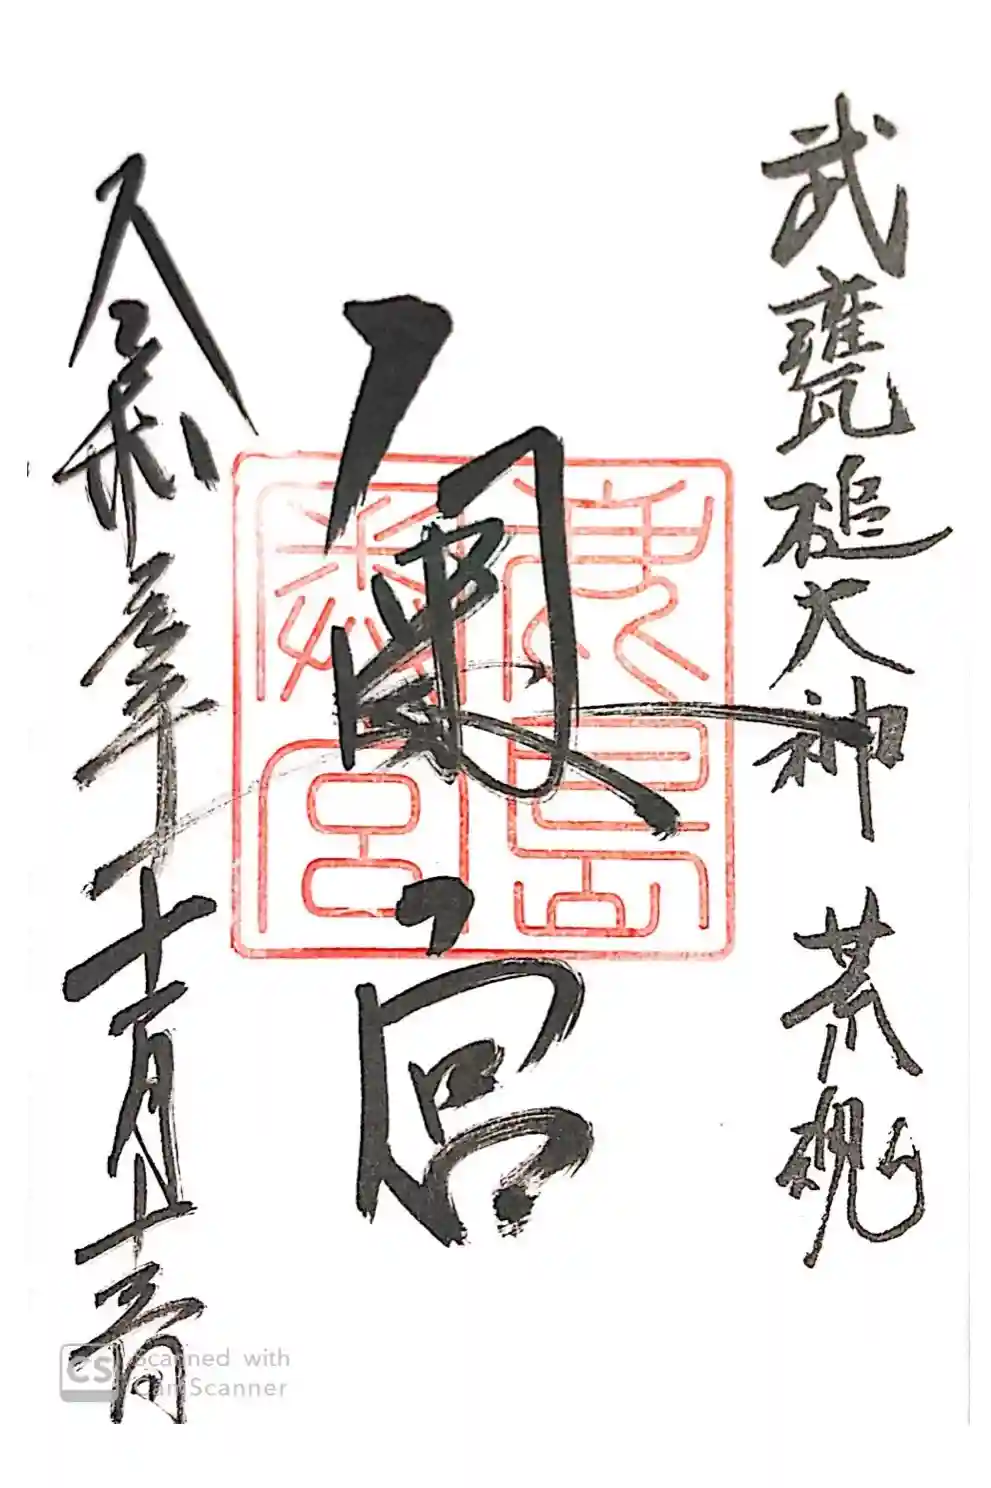 武甕槌大神 荒魂
奥宮
鹿島奥宮
令和 年十 月 十 日
CS Scanned with
CamScanner